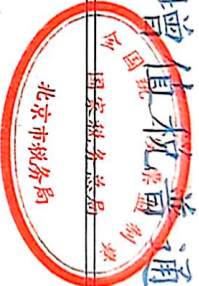 增值税普通
全国统一发票监制章
国家税务总局
北京市税务局